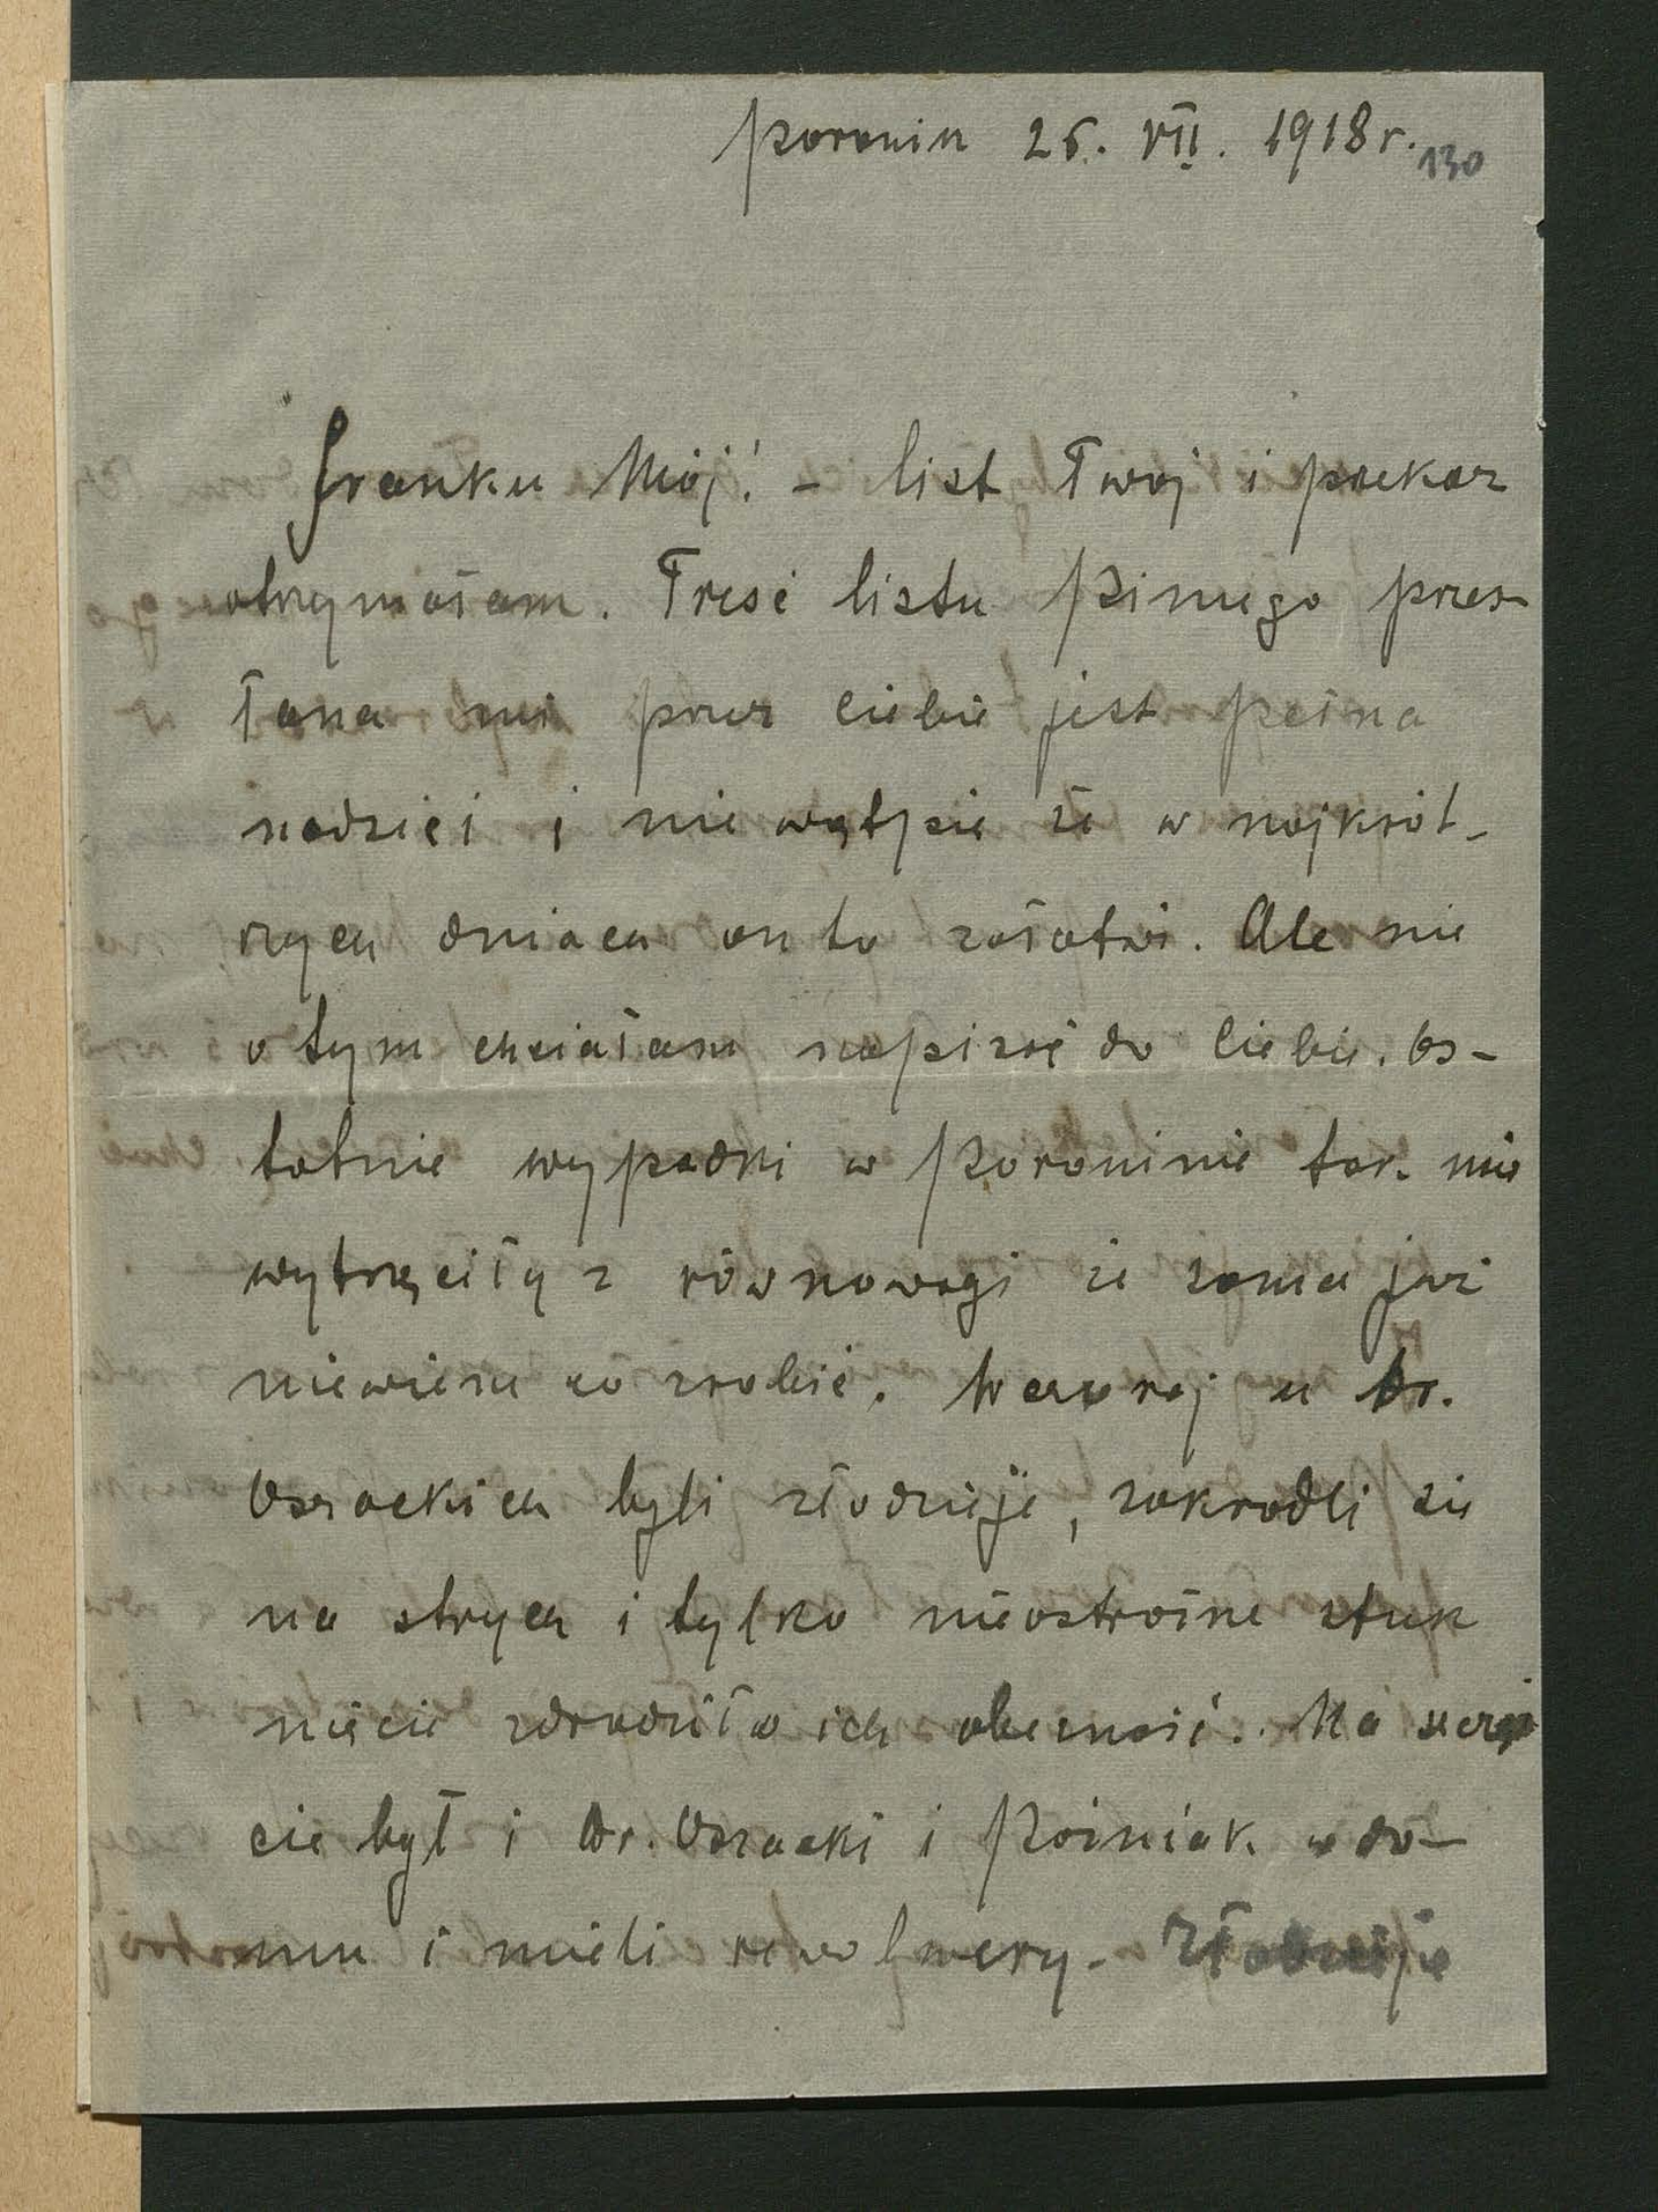 Poronin 26. VII. 1918 r.
130
Franku Mój! – list Twoj i przekaz
otrzymałam. Treść listu Piniego przes-
łana mi przez Ciebie jest pełna
nadzieji i nie wątpie że w najkrót-
szych dniach on to załatwi. Ale nie
o tym chciałam napisać do Ciebie. Os-
tatnie wypadki w Poroninie tak mie
wytrąciły z równowagi że sama już
niewiem co zrobić. Wczoraj u Dr.
Osrackich byli złodzieje, zakradli sie
na strych i tylko nieostrożne stuk
niecie zdradziło ich obecność. Na szczę
cie był i Dr. Osracki i Poźniak w do-
mu i mieli rewolwery. Złodzieje